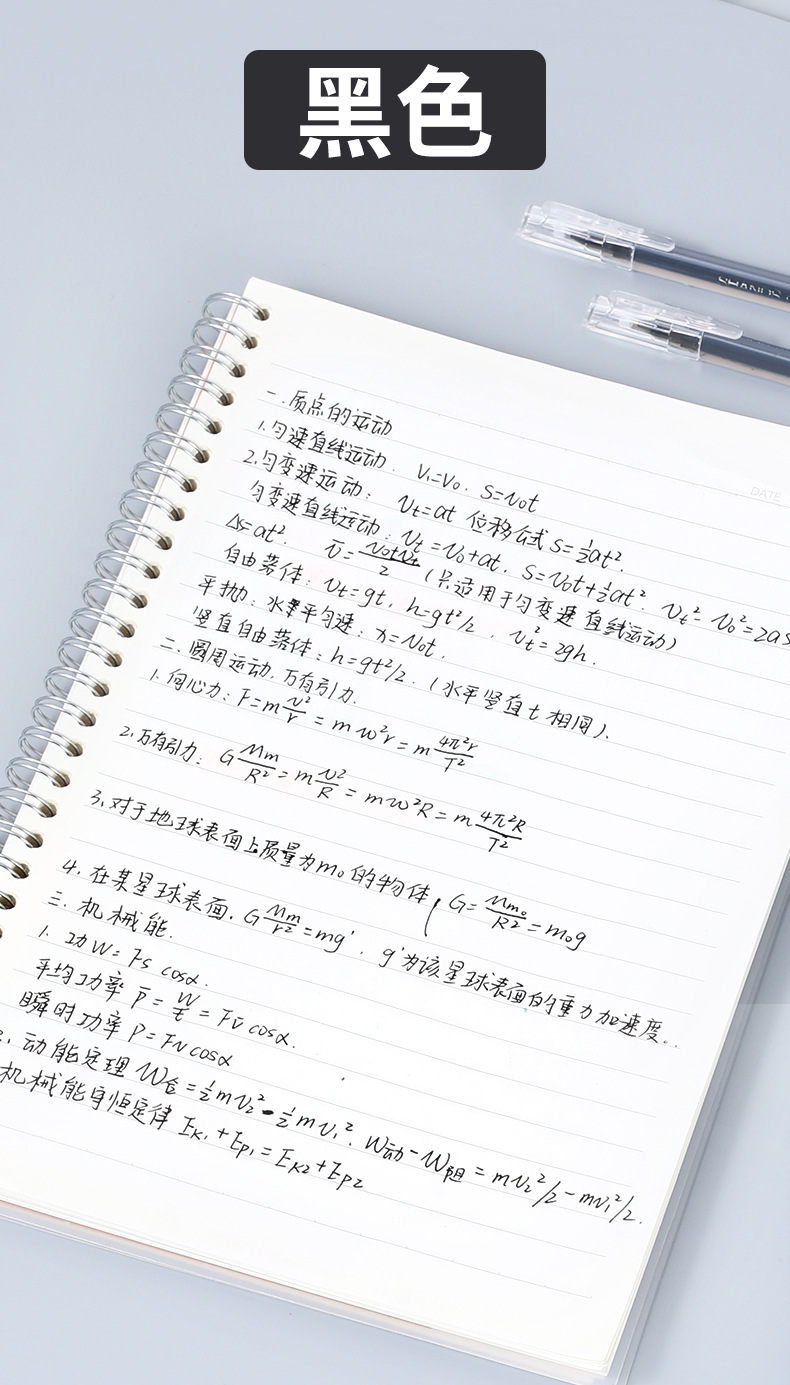 黑色
DATE
一.质点的运动
1.匀速直线运动. V₁=V₀. S=V₀t
2.匀变速运动: Vt=at 位移公式 S=½at².
匀变速直线运动: Vt=V₀+at. S=V₀t+½at². Vt²-V₀²=2as
Δs=at². v̄=(V₀+Vt)/2 (只适用于匀变速直线运动)
自由落体: Vt=gt, h=gt²/2. Vt²=2gh.
平抛: 水平匀速: x=V₀t.
竖直自由落体: h=gt²/2. (水平竖直t相同).
二.圆周运动.万有引力.
1.向心力: F=m v²/r = mω²r = m 4π²r/T²
2.万有引力: G Mm/R² = m v²/R = mω²R = m 4π²R/T²
3.对于地球表面上质量为m₀的物体, G= Mm₀/R² = m₀g
4.在某星球表面. G Mm/r² = mg'. g'为该星球表面的重力加速度..
三.机械能.
1.功W=Fs cosα.
平均功率 P̄ = W/t = Fv̄cosα.
瞬时功率 P=Fvcosα
动能定理 W合=½mV₂²-½mV₁². W动-W阻=mV₂²/2-mV₁²/2.
机械能守恒定律 EK₁+EP₁=EK2+EP2